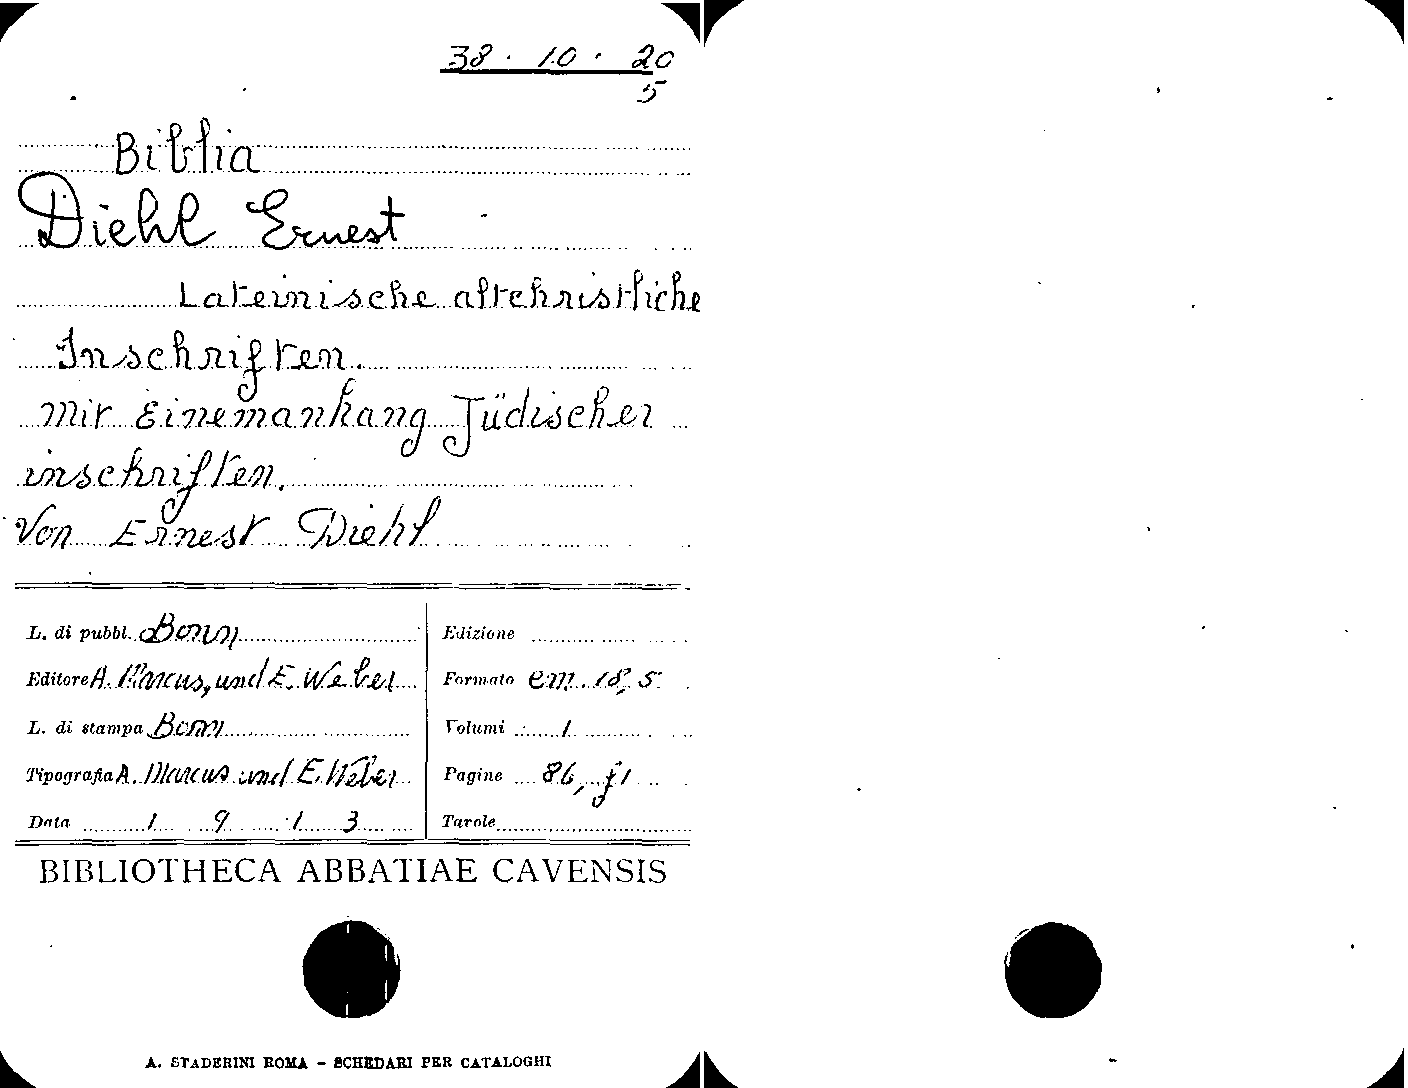 38 · 10 · 20
5
Biblia
Diehl Ernest
Lateinische altchristliche
Inschriften.
mit Einemanhang Jüdischer
inschriften.
Von Ernest Diehl
L. di pubbl. Bonn
Editore A. Marcus, und E. Weber
L. di stampa Bonn
Tipografia A. Marcus und E. Weber
Data 1 9 1 3
Edizione
Formato cm. 18,5
Volumi 1
Pagine 86, f1
Tavole
BIBLIOTHECA ABBATIAE CAVENSIS
A. STADERINI ROMA - SCHEDARI PER CATALOGHI